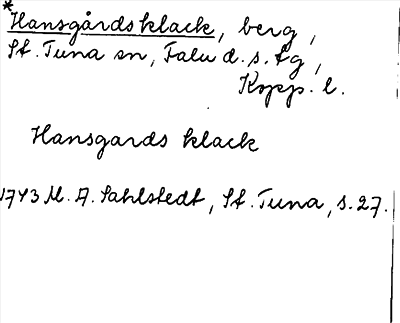 *Hansgårdsklack, berg,
St. Tuna sn, Falu d.s. tg,
Kopp. l.
Hansgards klack
1743 M. A. Sahlstedt, St. Tuna, s. 27.